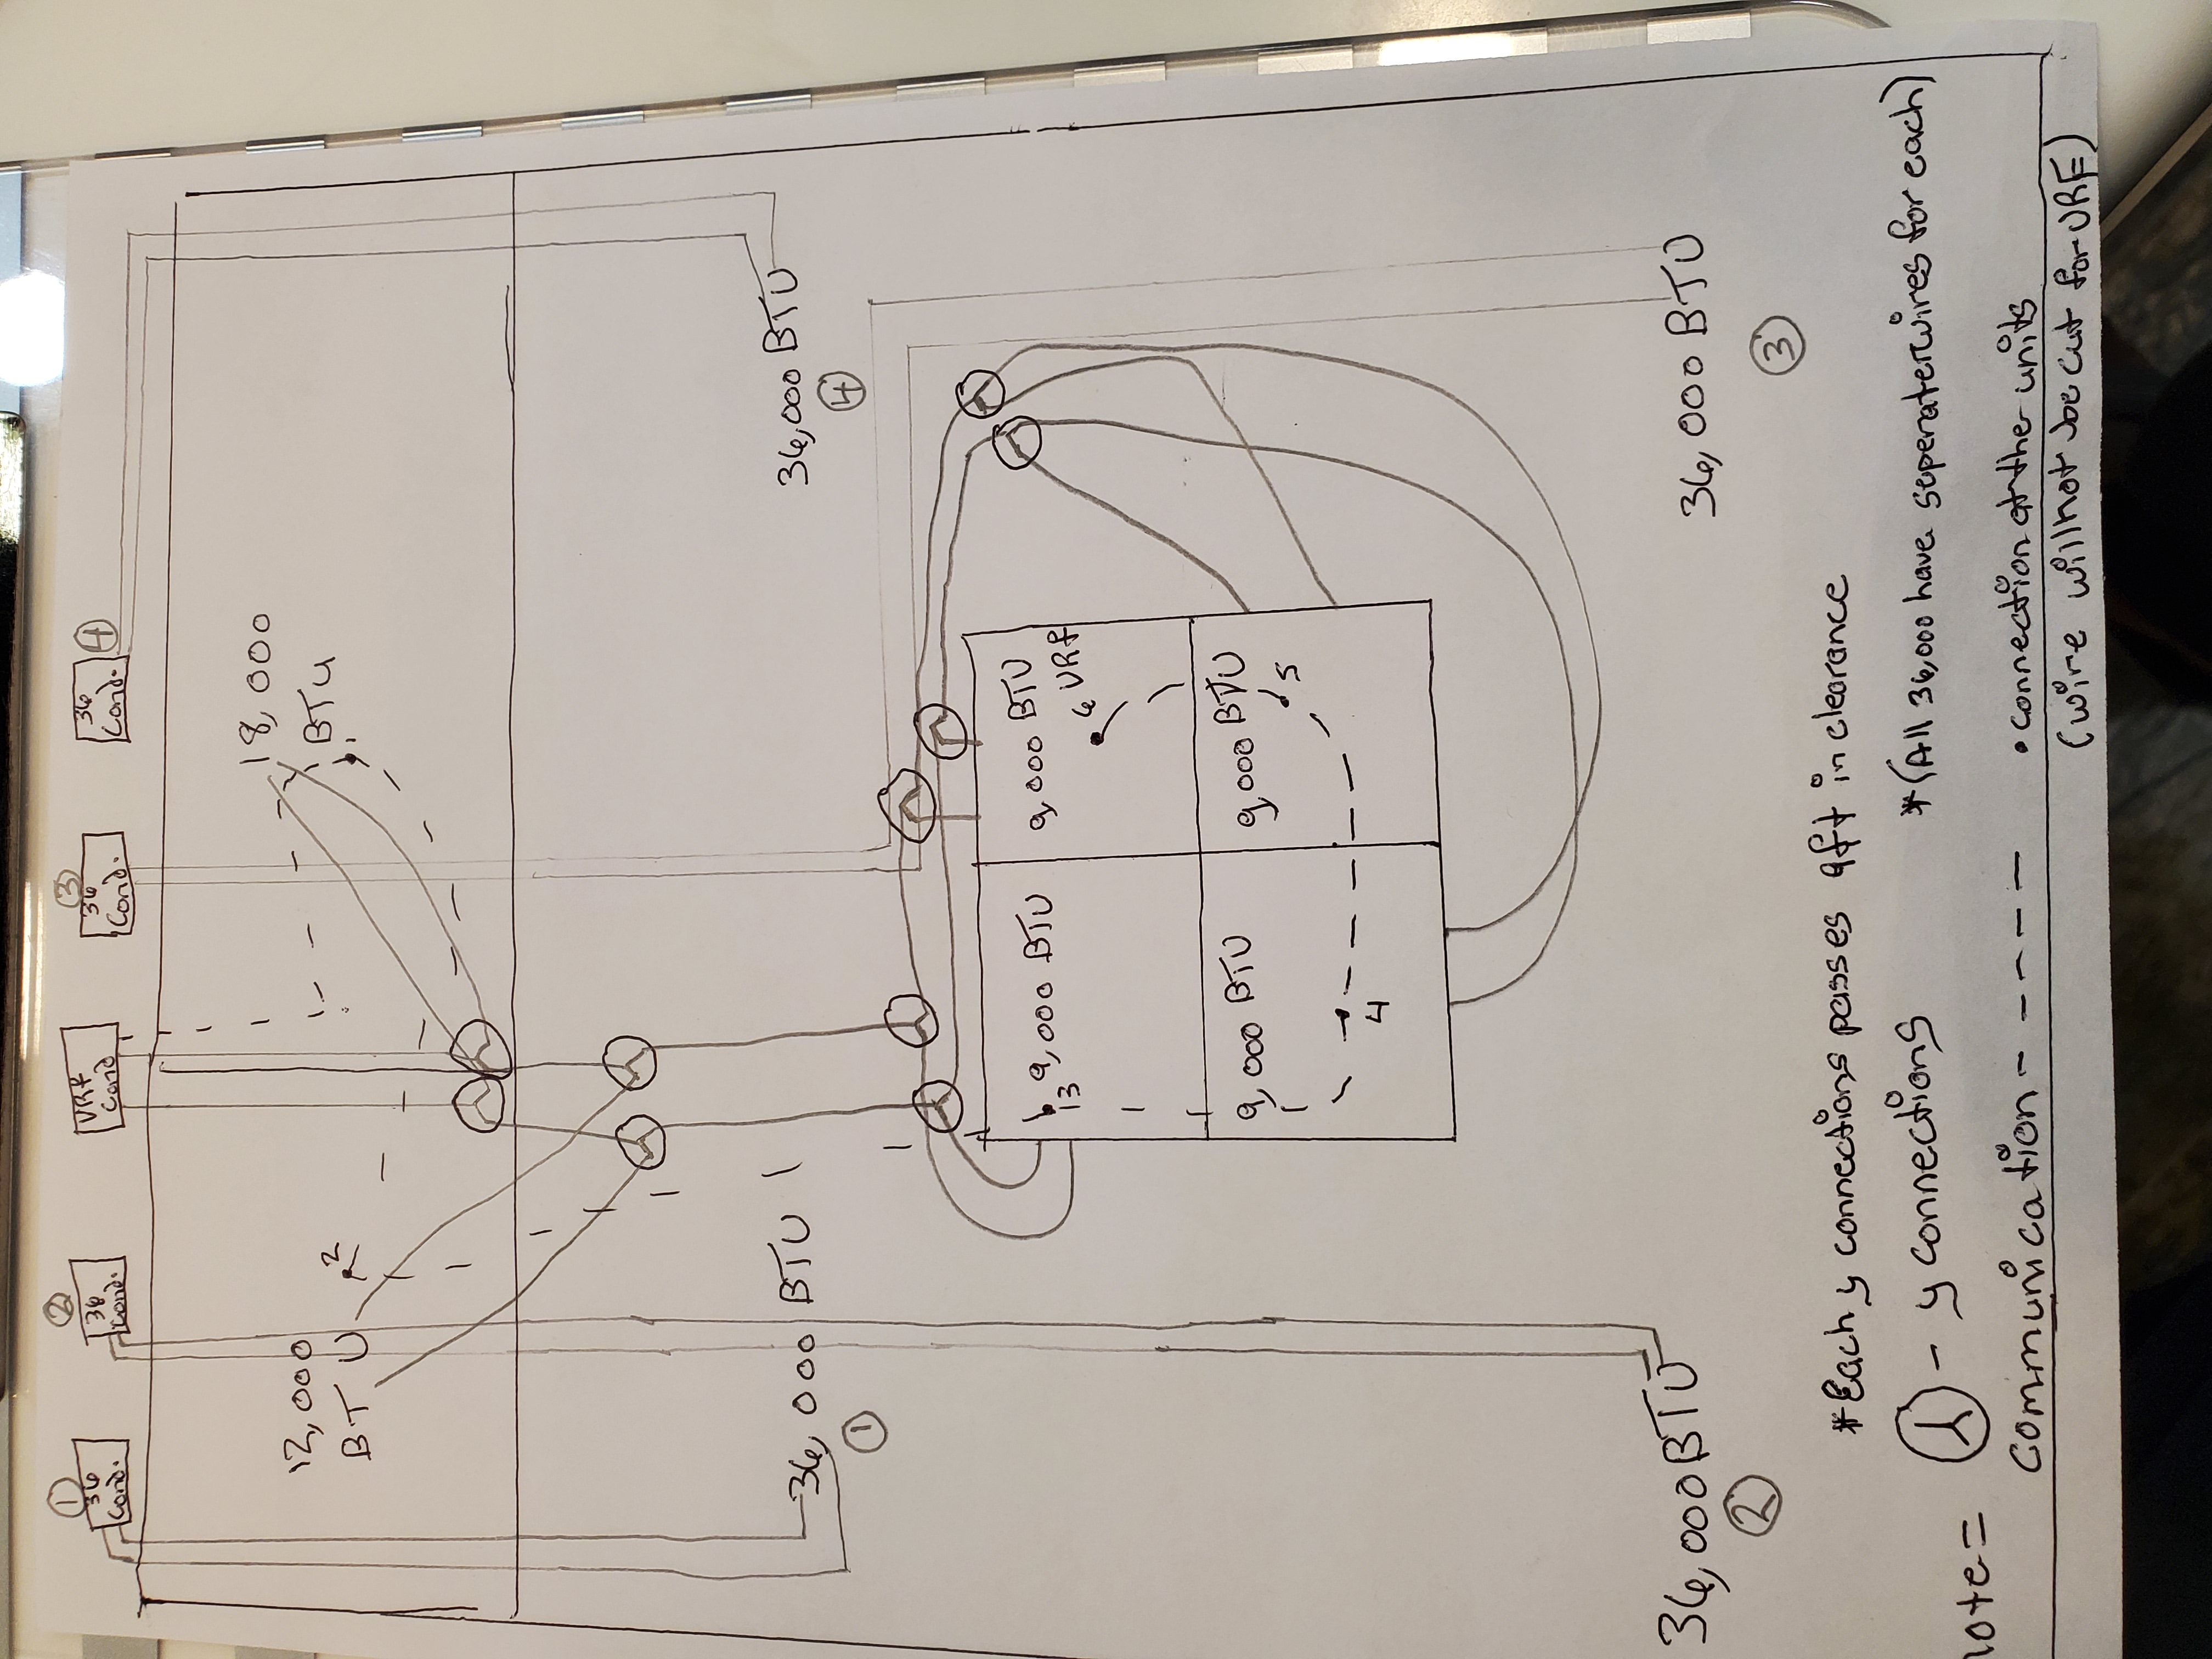 ① ② ③
36 36 VRF 36 36 ④
Cond. Cond. Cond Cond. Cond.
18,000
12,000
BTU
BTU
2
1
36,000 BTU
36,000 BTU
①
④
9,000 BTU
9,000 BTU
3
6 VRF
9,000 BTU
9,000 BTU
5
4
36,000 BTU
36,000 BTU
②
③
*Each y connections passes 9ft in clearance
- y connections
*(All 36,000 have seperate wires for each)
note=
Communication - - - - -
• connection at the units
(wire will not be cut for VRF)